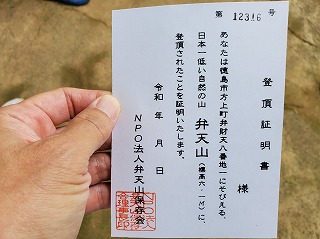 第 12316 号
登頂証明書
様
あなたは徳島市方上町弁財天八番地一にそびえる、
日本一低い自然の山 弁天山（標高六・一M）に、
登頂されたことを証明いたします。
令和 年 月 日
NPO法人弁天山保存会